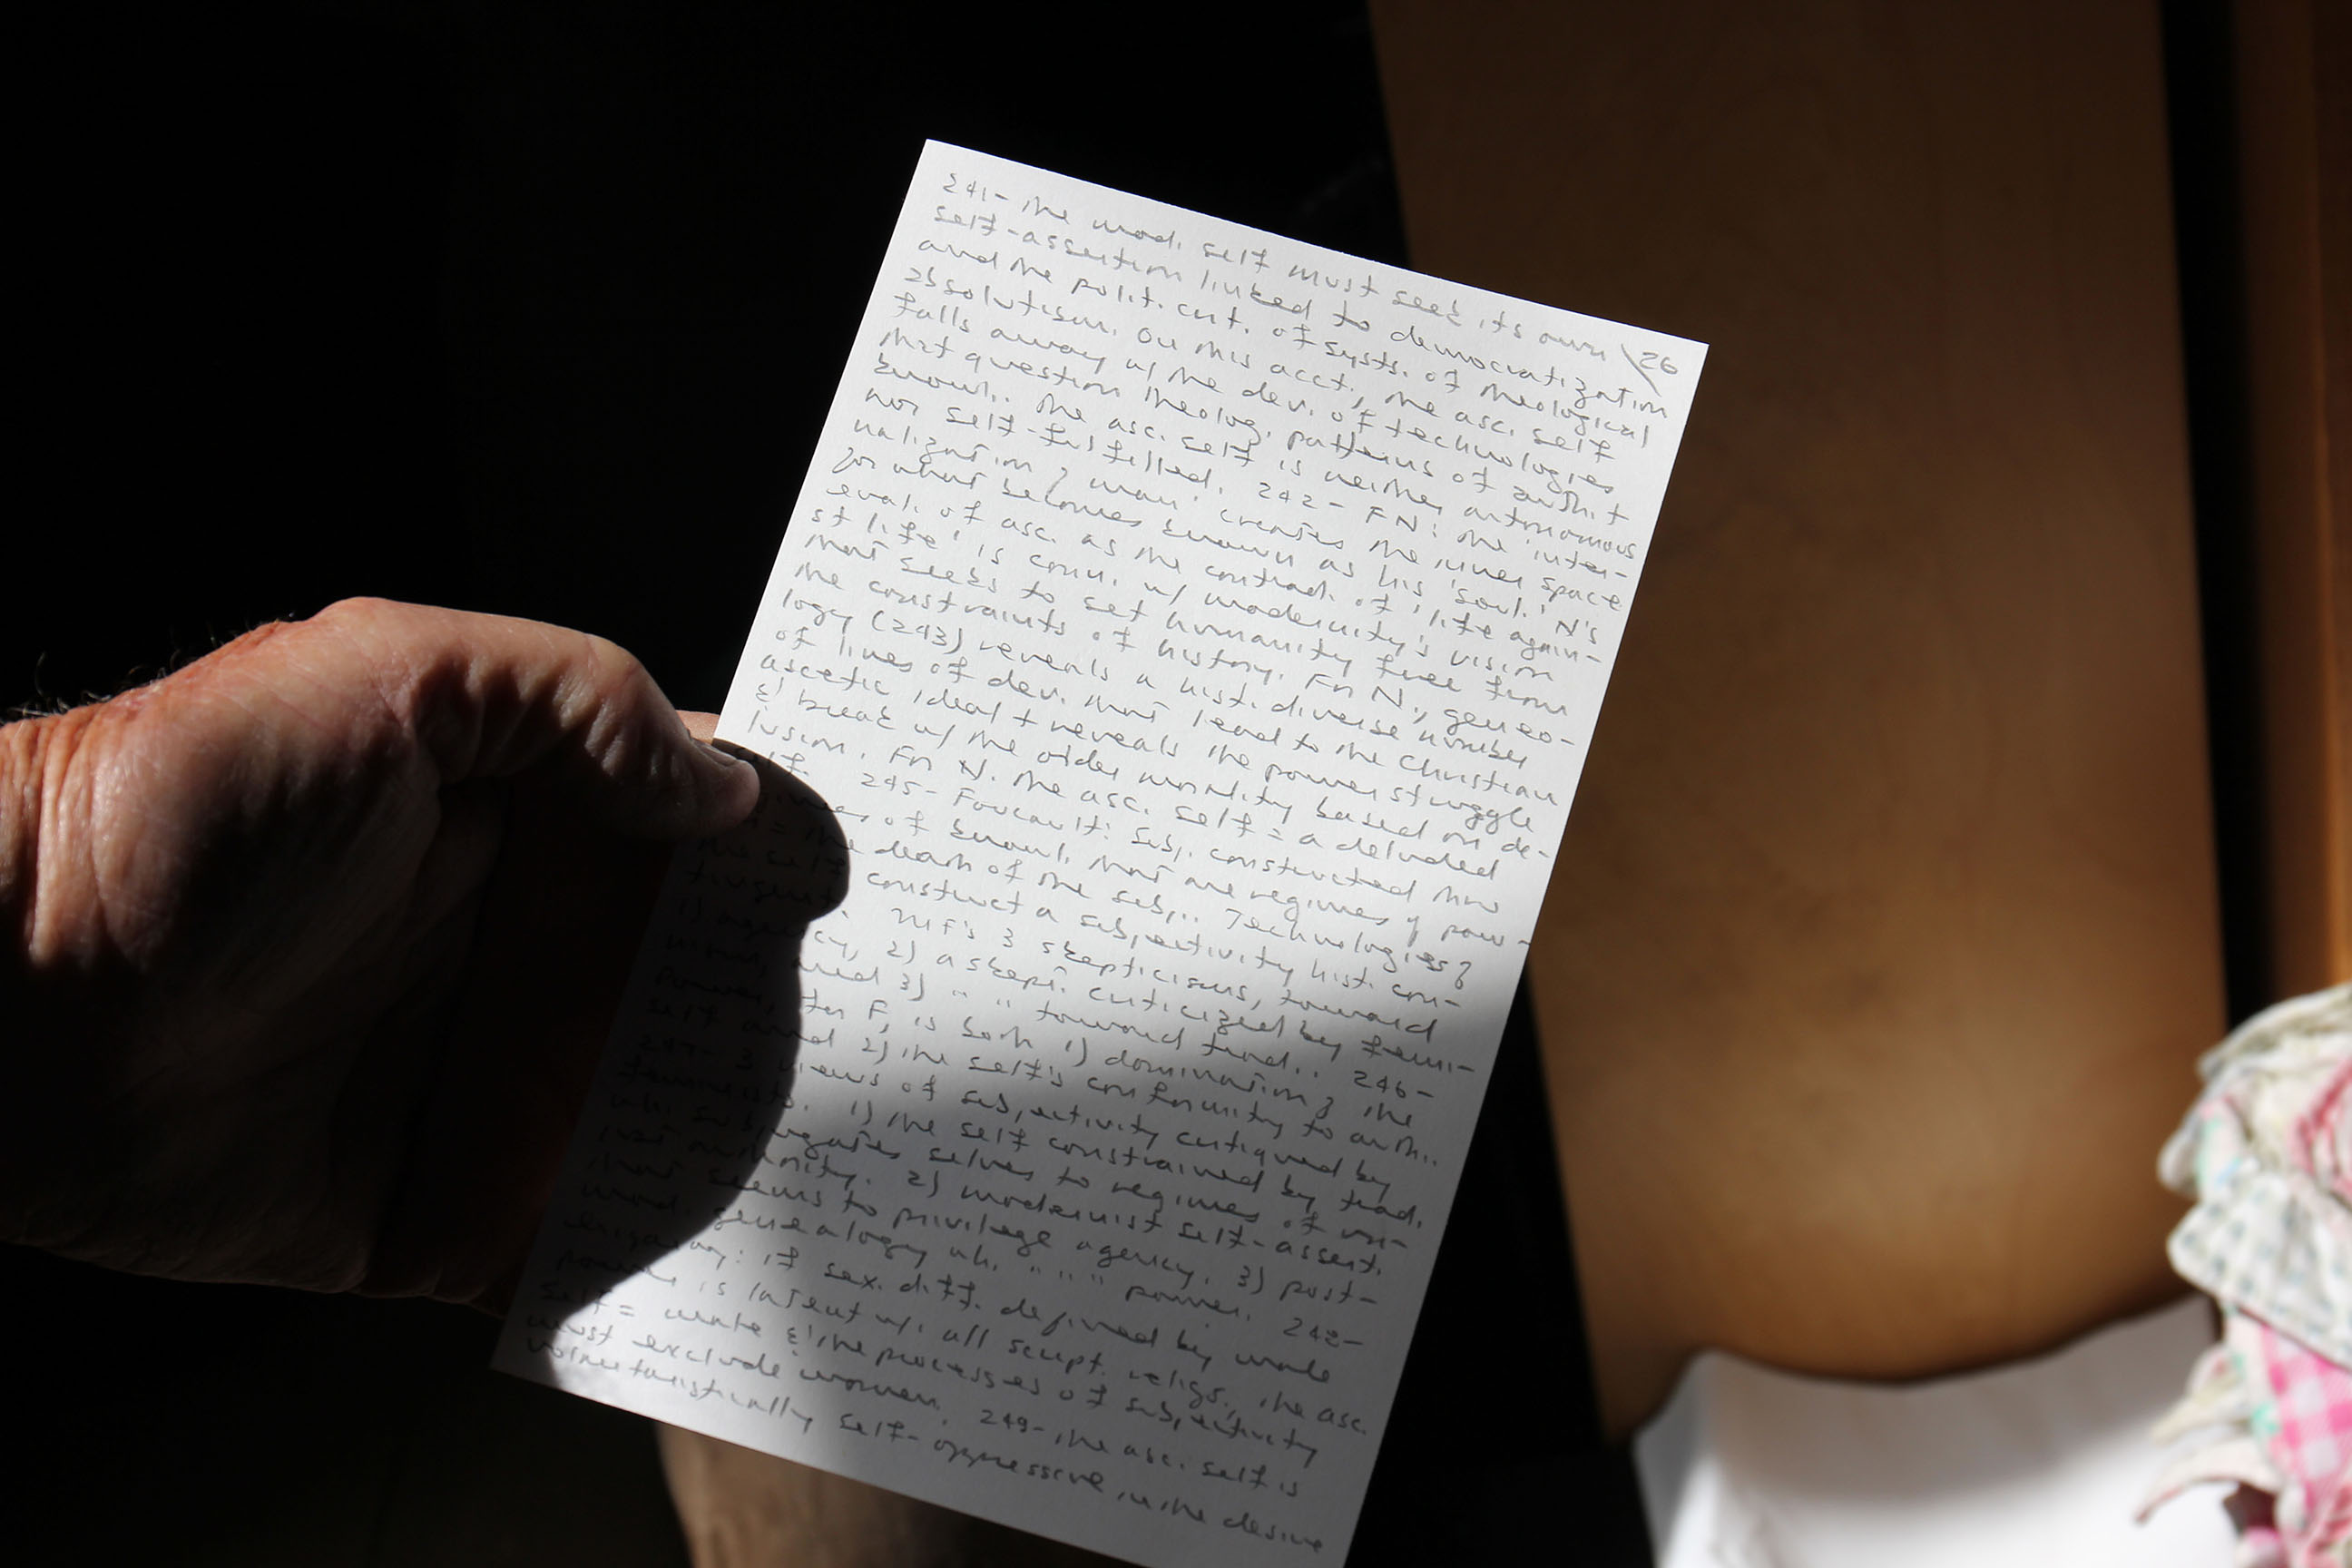 241- the mod. self must seek its own \26
self-assertion linked to democratization
and the polit. crit. of systs. of theological
absolutism. On this acct., the asc. self
falls away w/ the dev. of technologies
that question theolog. patterns of auth. +
knowl.. The asc. self is neither autonomous
nor self-fulfilled. 242- FN: the 'inter-
nalization of man' creates the inner space
for what becomes known as his 'soul.' N's
eval. of asc. as the contrad. of 'life again-
st life' is conn. w/ modernity's vision
that seeks to set humanity free from
the constraints of history. For N., geneo-
logy (243) reveals a hist. diverse number
of lines of dev. that lead to the Christian
ascetic ideal + reveals the power struggle
& break w/ the older morality based on de-
lusion. For N. the asc. self = a deluded
self. 245- Foucault: subj. constructed thru
of knowl. that are regimes of pow-
= the death of the subj.. Technologies of
the self construct a subjectivity hist. con-
tingent. MF's 3 skepticisms, toward
1) agency, 2) a skept. criticized by femi-
nism, and 3) " " toward trad.. 246-
power, for F, is both 1) domination of the
self and 2) the self's conformity to auth..
247- 3 views of subjectivity critiqued by
feminists. 1) the self constrained by trad.
wh. subjugates selves to regimes of
2) modernist self-assert.
that seems to privilege agency. 3) post-
mod. genealogy wh. " " " power. 248-
if sex. diff. defined by male
power is latent w/i all script. religs., the asc.
self = male & the processes of subjectivity
must exclude women. 249- the asc. self is
voluntaristically self-oppressive in the desire